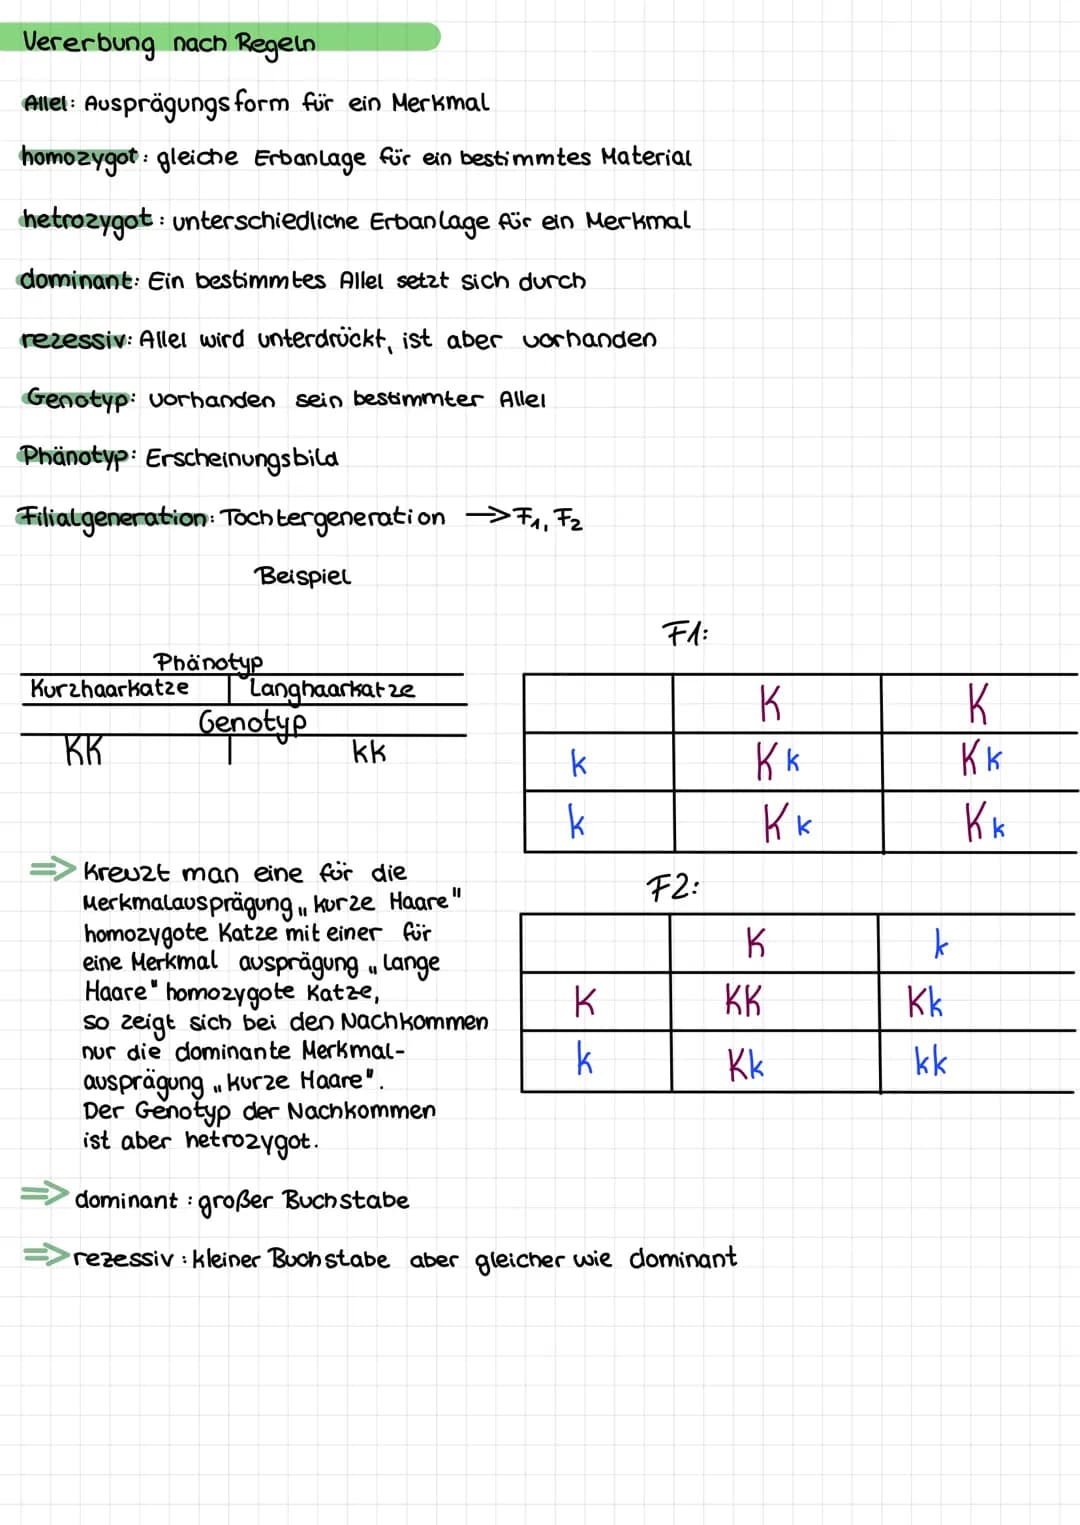 Vererbung nach Regeln
Allel: Ausprägungsform für ein Merkmal
homozygot: gleiche Erbanlage für ein bestimmtes Material
hetrozygot: unterschiedliche Erbanlage für ein Merkmal
dominant: Ein bestimmtes Allel setzt sich durch
rezessiv: Allel wird unterdrückt, ist aber vorhanden
Genotyp: vorhanden sein bestimmter Allel
Phänotyp: Erscheinungsbild
Filialgeneration: Tochtergeneration → F1, F2
Beispiel
Phänotyp
Kurzhaarkatze Langhaarkatze
Genotyp
KK kk
F1:
K K
k Kk Kk
k Kk Kk
⇒ kreuzt man eine für die
Merkmalausprägung „kurze Haare"
homozygote Katze mit einer für
eine Merkmal ausprägung „Lange
Haare" homozygote Katze,
so zeigt sich bei den Nachkommen
nur die dominante Merkmal-
ausprägung „kurze Haare".
Der Genotyp der Nachkommen
ist aber hetrozygot.
F2:
K k
K KK Kk
k Kk kk
⇒ dominant: großer Buchstabe
⇒ rezessiv: kleiner Buchstabe aber gleicher wie dominant